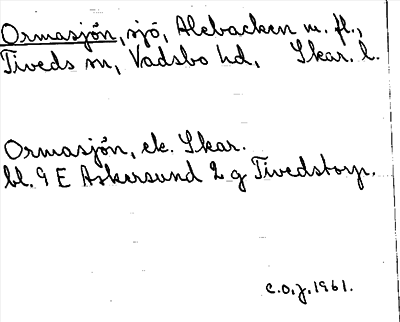 Ormasjön, sjö, Alebacken m. fl.,
Tiveds sn, Vadsbo hd, Skar. l.
Ormasjön, ek. Skar.
bl. 9 E Askersund 2 g Tivedstorp.
C.O.J. 1961.